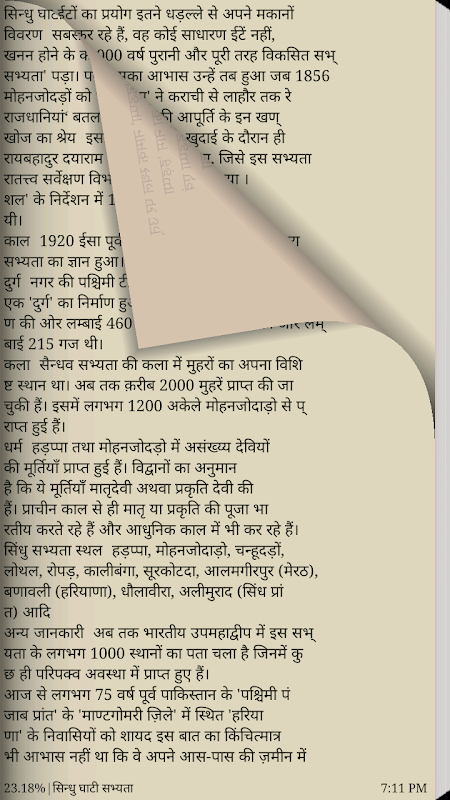 सिन्धु घाटईटों का प्रयोग इतने धड़ल्ले से अपने मकानों
विवरण सबस्कर रहे हैं, वह कोई साधारण ईटें नहीं,
खनन होने के क 000 वर्ष पुरानी और पूरी तरह विकसित सभ्
सभ्यता' पड़ा। आभास उन्हें तब हुआ जब 1856
मोहनजोदड़ों को ' ने कराची से लाहौर तक रे
राजधानियां' बतल की आपूर्ति के इन खण्
खोज का श्रेय इस खुदाई के दौरान ही
रायबहादुर दयाराम जिसे इस सभ्यता
रातत्त्व सर्वेक्षण विभ या ।
शल' के निर्देशन में 1
यी।
काल 1920 ईसा पूर्व
सभ्यता का ज्ञान हुआ।
दुर्ग नगर की पश्चिमी टी
एक 'दुर्ग' का निर्माण हु
ण की ओर लम्बाई 460 और लम्
बाई 215 गज थी।
कला सैन्धव सभ्यता की कला में मुहरों का अपना विशि
ष्ट स्थान था। अब तक क़रीब 2000 मुहरें प्राप्त की जा
चुकी हैं। इसमें लगभग 1200 अकेले मोहनजोदाड़ो से प्
राप्त हुई हैं।
धर्म हड़प्पा तथा मोहनजोदड़ो में असंख्य देवियों
की मूर्तियाँ प्राप्त हुई हैं। विद्वानों का अनुमान
है कि ये मूर्तियाँ मातृदेवी अथवा प्रकृति देवी की
हैं। प्राचीन काल से ही मातृ या प्रकृति की पूजा भा
रतीय करते रहे हैं और आधुनिक काल में भी कर रहे हैं।
सिंधु सभ्यता स्थल हड़प्पा, मोहनजोदाड़ो, चन्हूदड़ों,
लोथल, रोपड़, कालीबंगा, सूरकोटदा, आलमगीरपुर (मेरठ),
बणावली (हरियाणा), धौलावीरा, अलीमुराद (सिंध प्रां
त) आदि
अन्य जानकारी अब तक भारतीय उपमहाद्वीप में इस सभ्
यता के लगभग 1000 स्थानों का पता चला है जिनमें कु
छ ही परिपक्व अवस्था में प्राप्त हुए हैं।
आज से लगभग 75 वर्ष पूर्व पाकिस्तान के 'पश्चिमी पं
जाब प्रांत' के 'माण्टगोमरी ज़िले' में स्थित 'हरिया
णा' के निवासियों को शायद इस बात का किंचित्मात्र
भी आभास नहीं था कि वे अपने आस-पास की ज़मीन में
23.18% | सिन्धु घाटी सभ्यता 7:11 PM